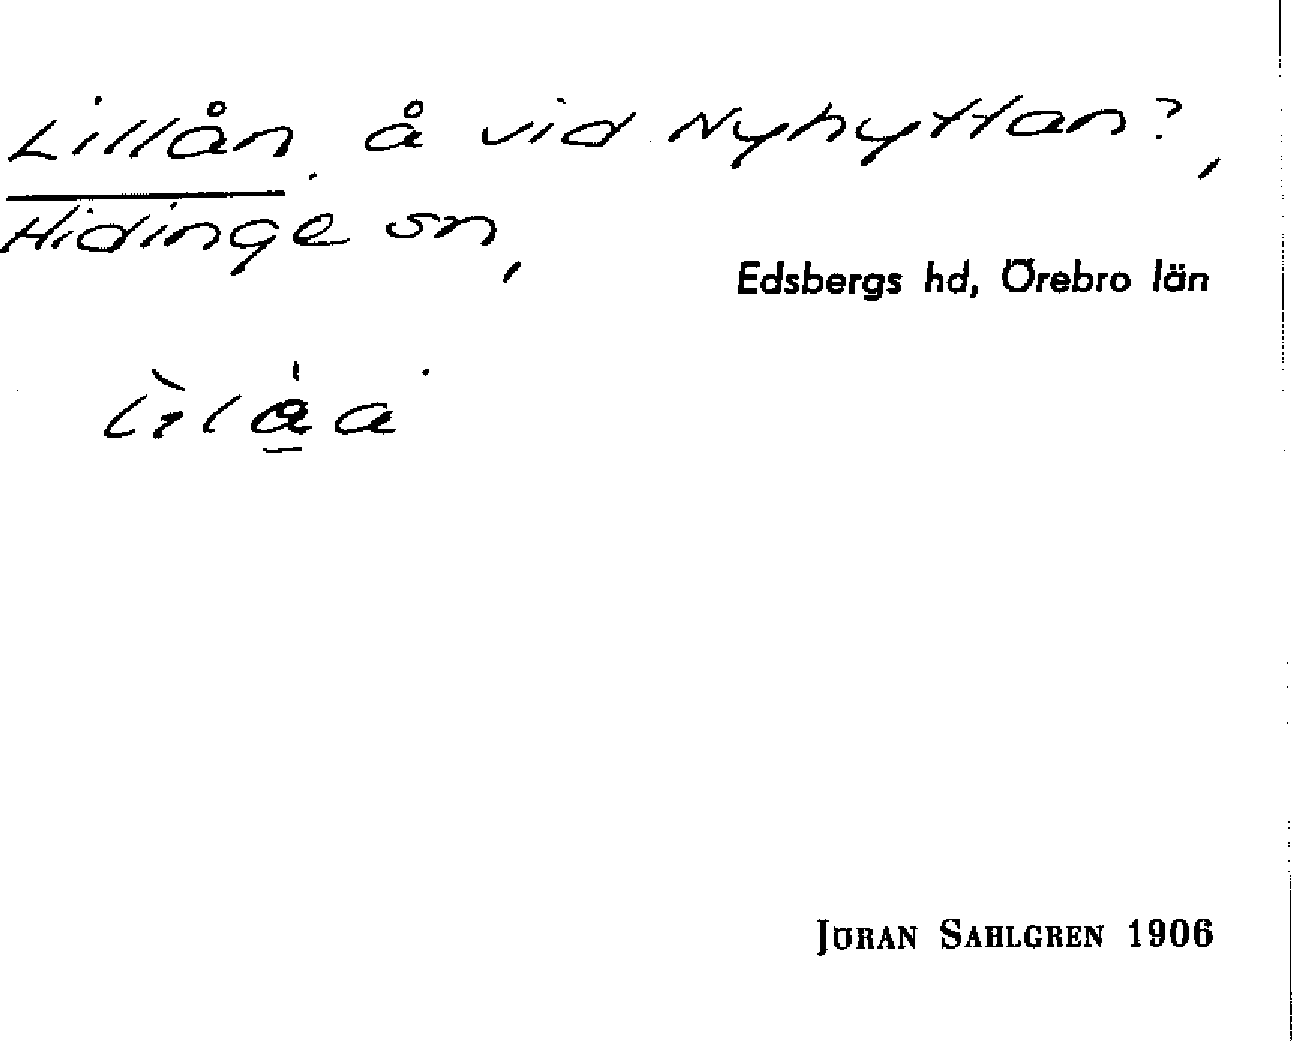 Lillån, å vid Nyhyttan?,
Hidinge sn,
Edsbergs hd, Örebro län
JÖRAN SAHLGREN 1906